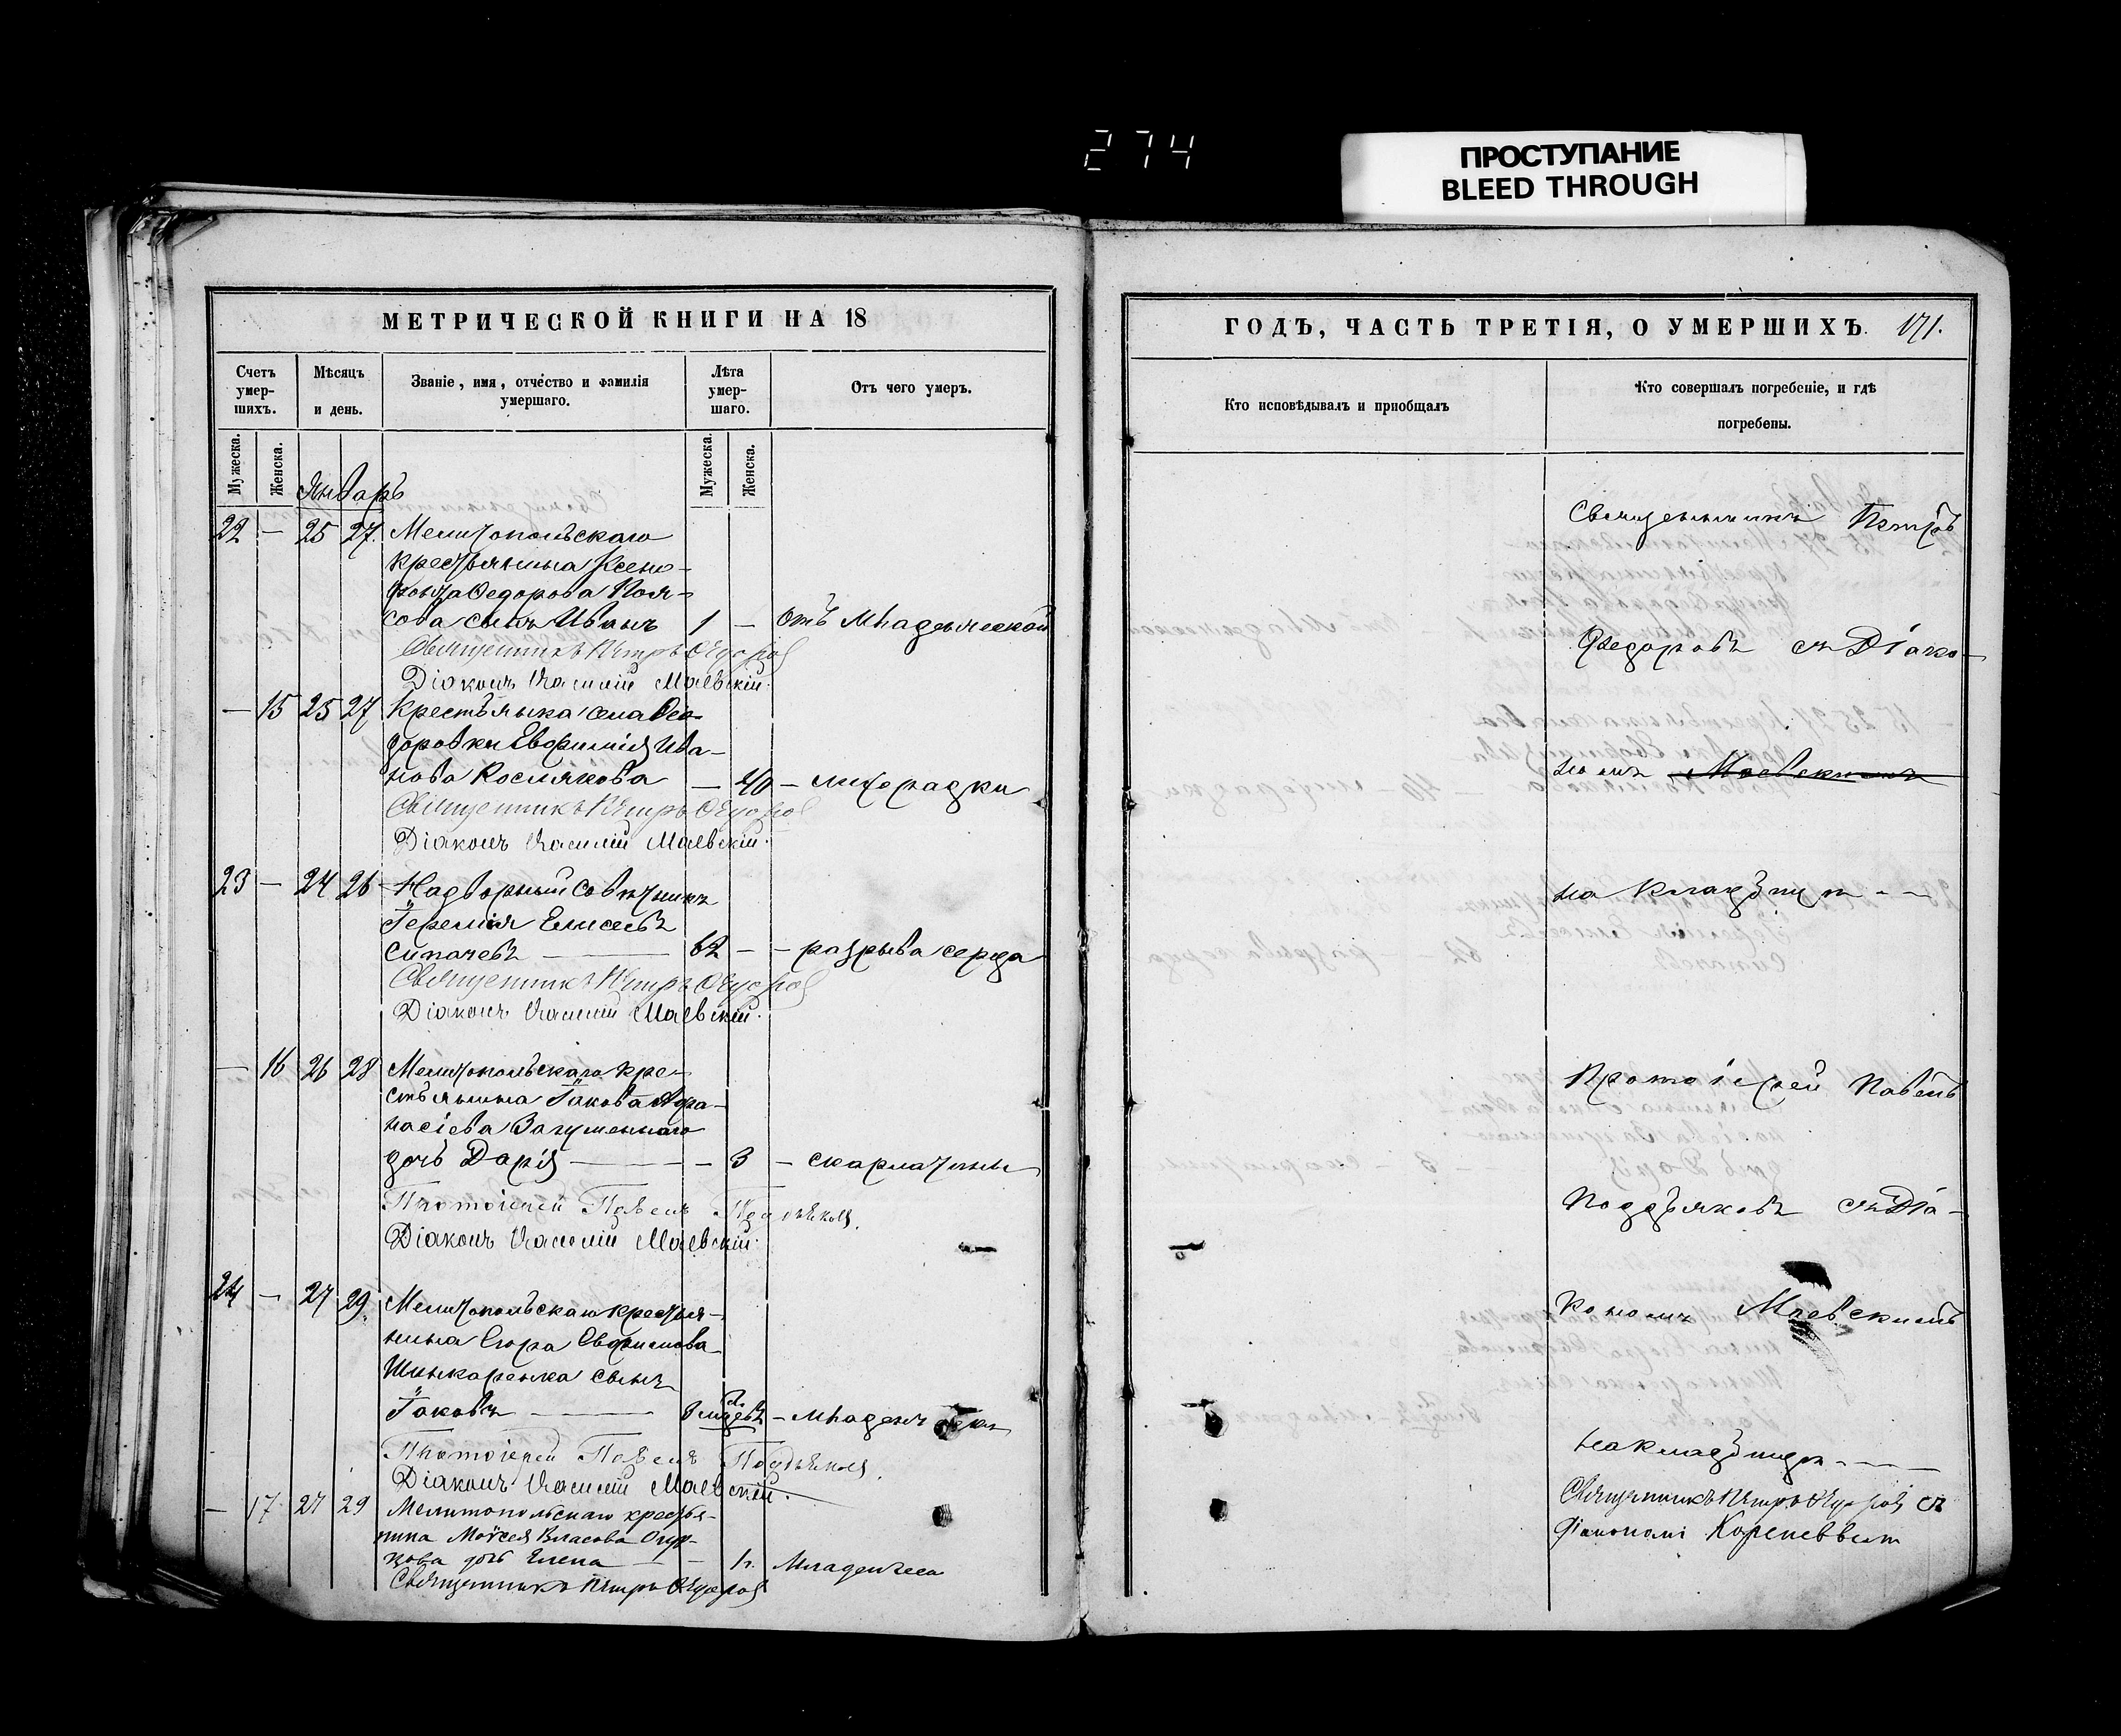 274
ПРОСТУПАНИЕ
BLEED THROUGH
МЕТРИЧЕСКОЙ КНИГИ НА 18
Счетъ умер-шихъ.
Мѣсяцъ и день.
Званіе, имя, отчество и фамилія умершаго.
Лѣта умер-шаго.
Отъ чего умеръ.
Мужеска.
Женска.
Мужеска.
Женска.
Январь
22 — 25 27. Мелитопольскаго
крестьянина Ксено-
фонта Федорова
сова сынъ Иванъ 1 — отъ младенческой
Священникъ Петръ Федоровъ
Діаконъ Василій Маевскій.
— 15 25 27 Крестьянка села Ѳео-
доровки Евфимія Ива-
нова Кослякова — 40 — лихорадки
Священникъ Петръ Федоровъ
Діаконъ Василій Маевскій.
23 — 24 26 Надворный Совѣтникъ
Іеремія Елисеевъ
62 — — разрыва серца
Священникъ Петръ Федоровъ
Діаконъ Василій Маевскій.
— 16 26 28 Мелитопольскаго кре-
стьянина Іакова Афа-
насіева Загуменнаго
дочь Дарія — — 3 — скарлатины
Протоіерей Павелъ Поддьяковъ.
Діаконъ Василій Маевскій.
24 — 27 29. Мелитопольскаго крестья-
нина Егора Евфимова
Шинкаренка сынъ
Іаковъ — 8 —
Протоіерей Павелъ Поддьяковъ.
Діаконъ Василій Маевскій.
— 17 27 29 Мелитопольскаго крестья-
нина Моѵсея Власова Огур-
цова дочь Елена — —
Священникъ Петръ Федоровъ
ГОДЪ, ЧАСТЬ ТРЕТІЯ, О УМЕРШИХЪ. 171.
Кто исповѣдывалъ и приобщалъ
Кто совершалъ погребеніе, и гдѣ погребены.
Священникъ Петръ
Федоровъ съ Діако-
номъ Маевскимъ
на кладбищѣ — —
Протоіерей Павелъ
Поддьяковъ съ Діа-
кономъ Маевскимъ
на кладбищѣ — —
Священникъ Петръ Федоровъ съ
діакономъ